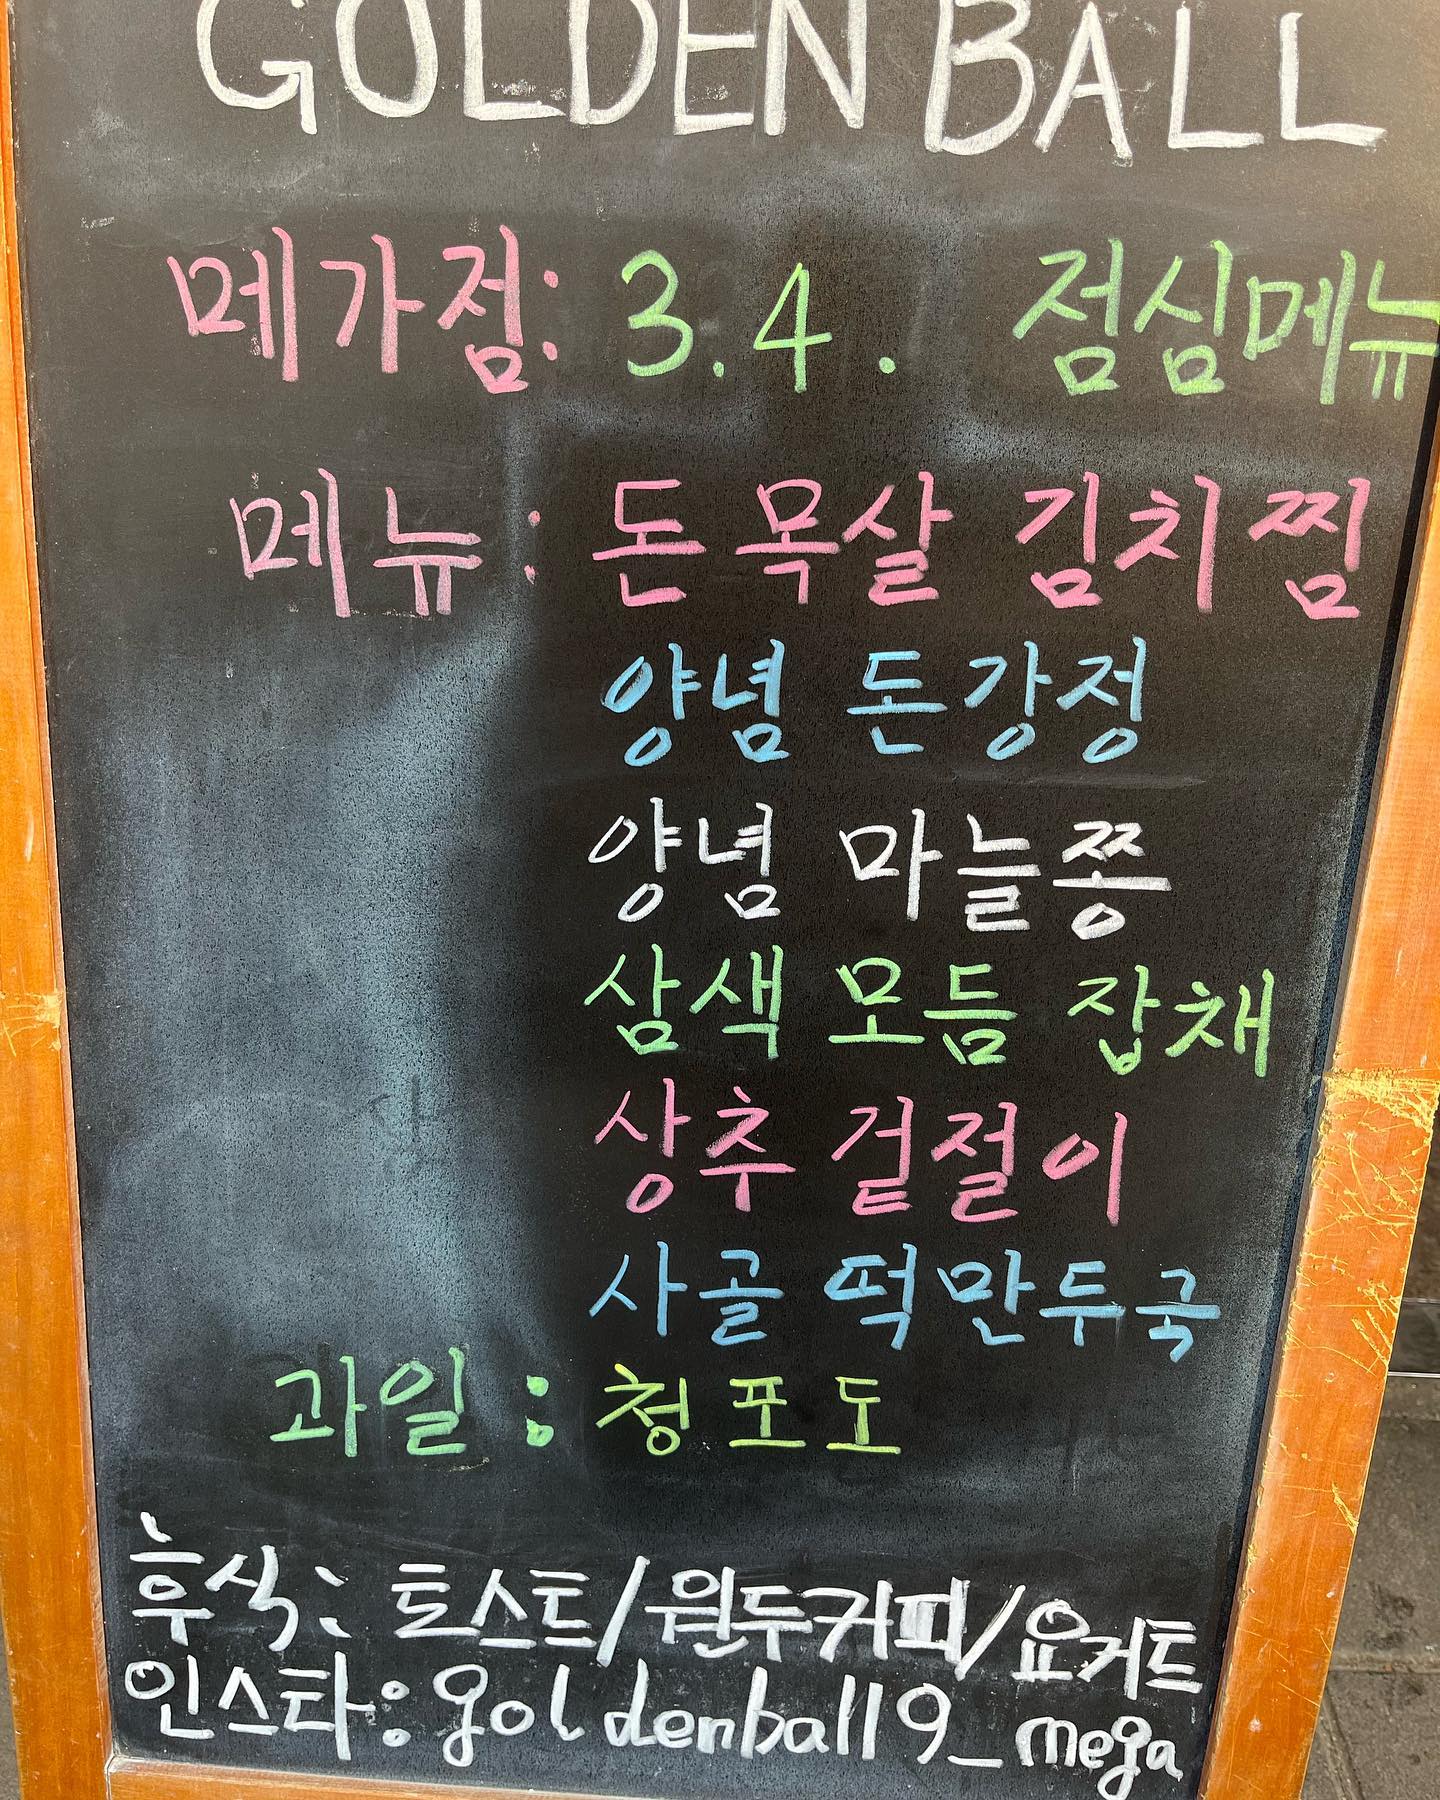 GOLDEN BALL
메가점: 3.4. 점심메뉴
메뉴: 돈 목살 김치찜
양념 돈강정
양념 마늘쫑
삼색 모듬 잡채
상추 겉절이
사골 떡만두국
과일: 청포도
후식: 토스트/원두커피/요거트
인스타: goldenball9_mega